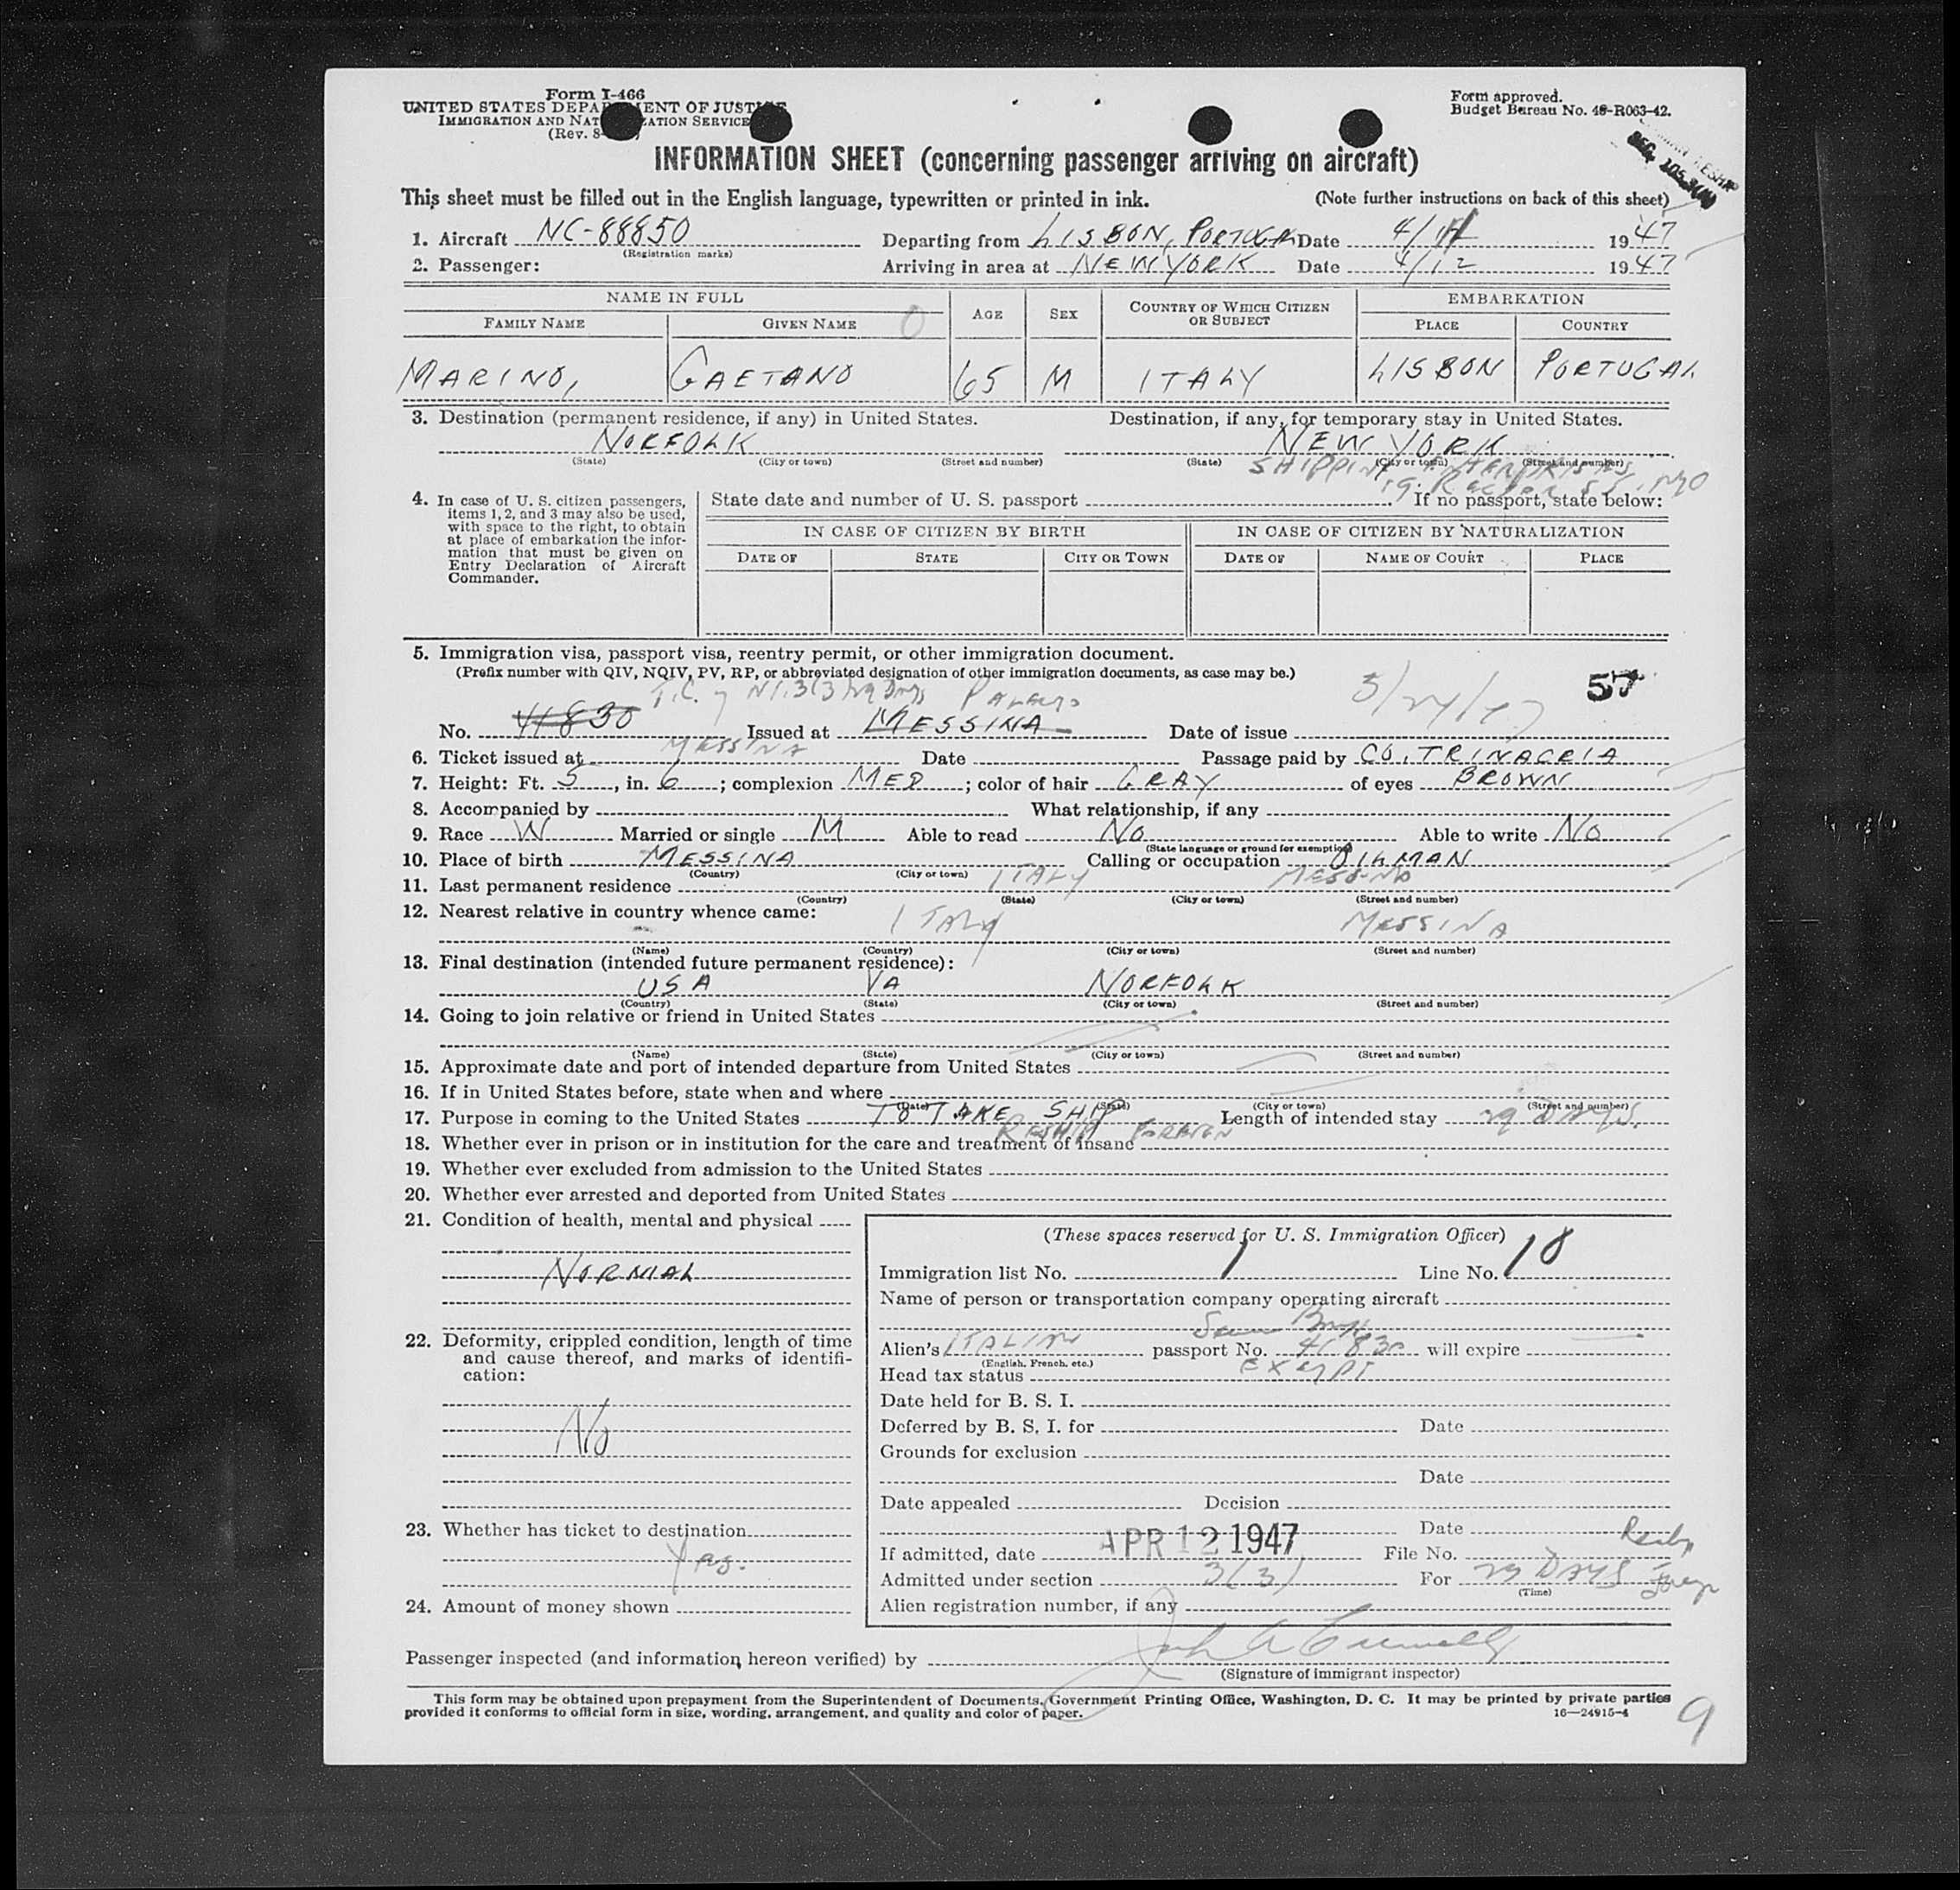 Form I-466
UNITED STATES DEPARTMENT OF JUSTICE
IMMIGRATION AND NATURALIZATION SERVICE
(Rev. 8-
Form approved.
Budget Bureau No. 43-R063-42.
INFORMATION SHEET (concerning passenger arriving on aircraft)
This sheet must be filled out in the English language, typewritten or printed in ink. (Note further instructions on back of this sheet)
1. Aircraft NC-88850 Departing from LISBON, PORTUGAL Date 4/11 1947
(Registration marks)
2. Passenger: Arriving in area at NEW YORK Date 4/12 1947
NAME IN FULL AGE SEX COUNTRY OF WHICH CITIZEN OR SUBJECT EMBARKATION
FAMILY NAME GIVEN NAME PLACE COUNTRY
MARINO, GAETANO 65 M ITALY LISBON PORTUGAL
3. Destination (permanent residence, if any) in United States. Destination, if any, for temporary stay in United States.
NORFOLK NEW YORK
(State) (City or town) (Street and number) (State) (City or town) (Street and number)
SHIPPING ENTERPRISES
4. In case of U. S. citizen passengers, items 1, 2, and 3 may also be used, with space to the right, to obtain at place of embarkation the information that must be given on Entry Declaration of Aircraft Commander.
State date and number of U. S. passport If no passport, state below:
IN CASE OF CITIZEN BY BIRTH IN CASE OF CITIZEN BY NATURALIZATION
DATE OF STATE CITY OR TOWN DATE OF NAME OF COURT PLACE
5. Immigration visa, passport visa, reentry permit, or other immigration document.
(Prefix number with QIV, NQIV, PV, RP, or abbreviated designation of other immigration documents, as case may be.)
57
No. 41830 Issued at MESSINA Date of issue
6. Ticket issued at MESSINA Date Passage paid by CO. TRINACRIA
7. Height: Ft. 5, in. 6; complexion MED; color of hair GRAY of eyes BROWN
8. Accompanied by What relationship, if any
9. Race W Married or single M Able to read No Able to write No
(State language or ground for exemption)
10. Place of birth MESSINA Calling or occupation OILMAN
(Country) (City or town)
11. Last permanent residence ITALY MESSINA
(Country) (State) (City or town) (Street and number)
12. Nearest relative in country whence came:
ITALY MESSINA
(Name) (Country) (City or town) (Street and number)
13. Final destination (intended future permanent residence):
USA VA NORFOLK
(Country) (State) (City or town) (Street and number)
14. Going to join relative or friend in United States
(Name) (State) (City or town) (Street and number)
15. Approximate date and port of intended departure from United States
16. If in United States before, state when and where
(Date) (State) (City or town) (Street and number)
17. Purpose in coming to the United States TO TAKE SHIP Length of intended stay 29 DAYS.
RESHIP FOREIGN
18. Whether ever in prison or in institution for the care and treatment of insane
19. Whether ever excluded from admission to the United States
20. Whether ever arrested and deported from United States
21. Condition of health, mental and physical
NORMAL
22. Deformity, crippled condition, length of time and cause thereof, and marks of identification:
No
23. Whether has ticket to destination
Yes.
24. Amount of money shown
(These spaces reserved for U. S. Immigration Officer)
Immigration list No. 1 Line No. 18
Name of person or transportation company operating aircraft
Alien's ITALIAN passport No. 41830 will expire
(English, French, etc.)
Head tax status EXEMPT
Date held for B. S. I.
Deferred by B. S. I. for Date
Grounds for exclusion
Date
Date appealed Decision
Date
If admitted, date APR 12 1947 File No.
Admitted under section 3(3) For 29 DAYS
(Time)
Alien registration number, if any
Passenger inspected (and information hereon verified) by
(Signature of immigrant inspector)
This form may be obtained upon prepayment from the Superintendent of Documents, Government Printing Office, Washington, D. C. It may be printed by private parties
provided it conforms to official form in size, wording, arrangement, and quality and color of paper. 16—24915-4
9